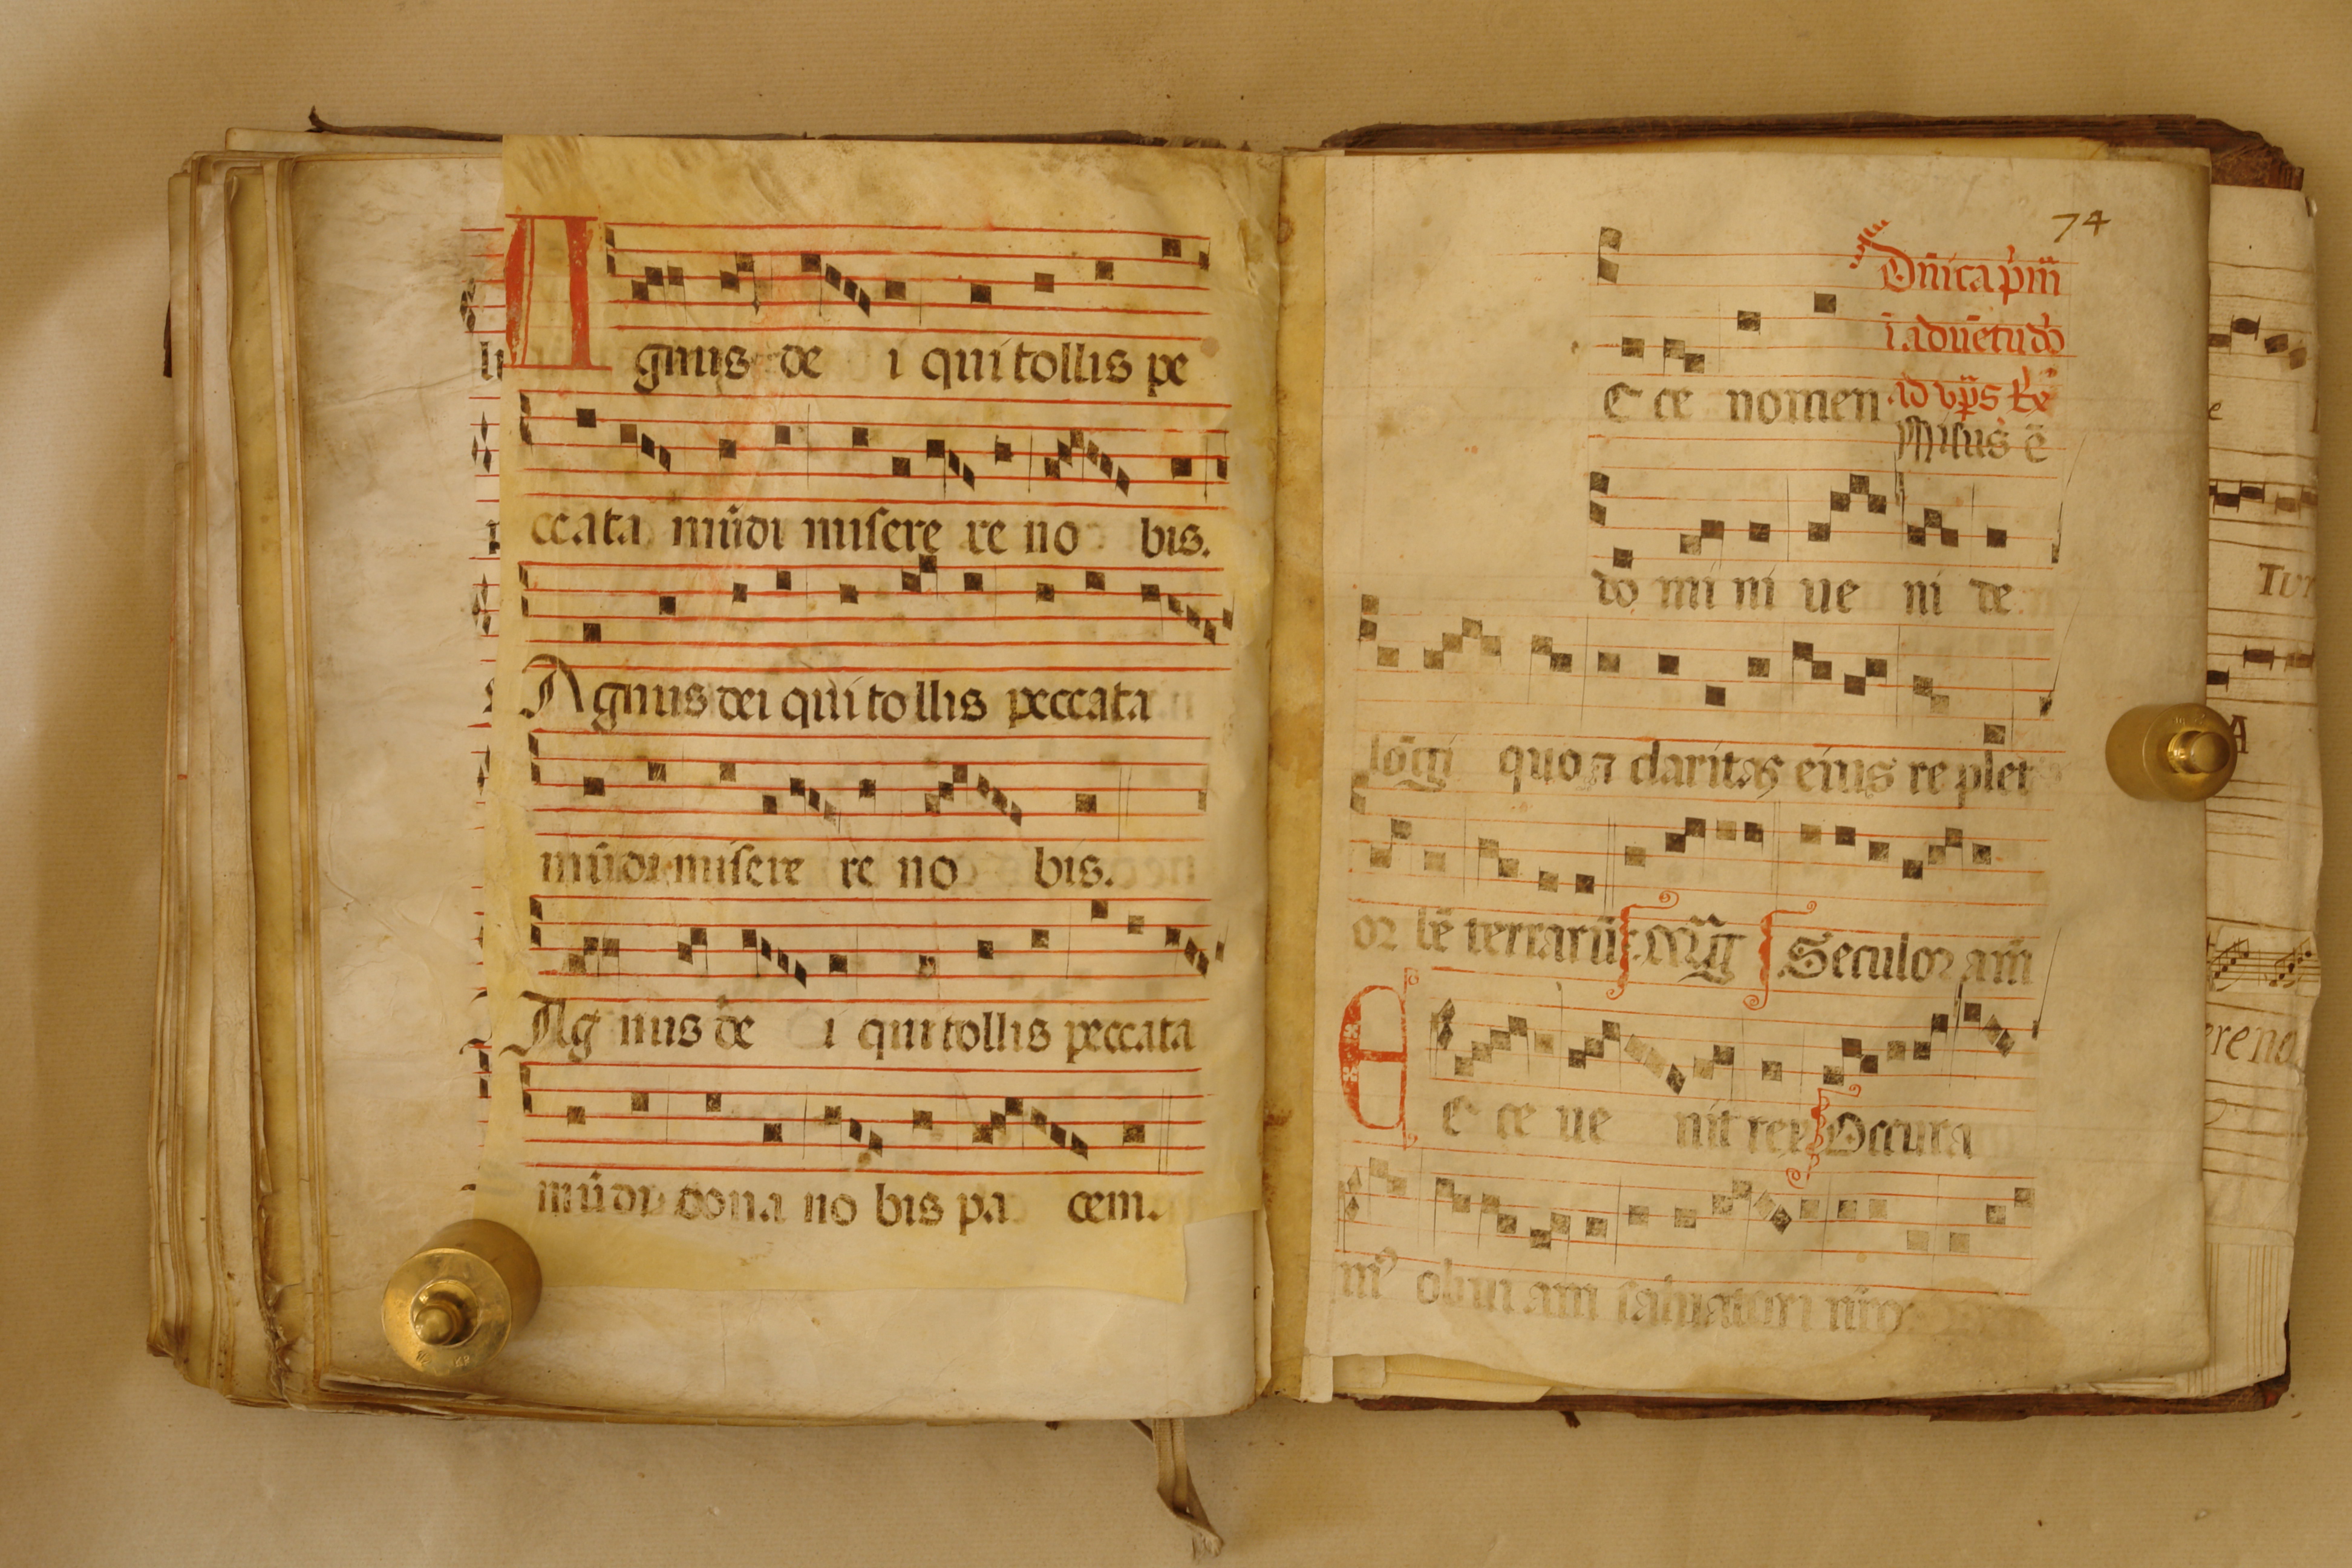 Agnus de i qui tollis pe
ccata mūdi misere re no bis.
Agnus dei qui tollis peccata
mūdi misere re no bis.
Ag nus de i qui tollis peccata
mūdi dona no bis pa cem.
74
Dn̄ica pͥm̄
ī aduētu dō
ad vp̄s
Missus ē
E cce nomen
do mi ni ue ni de
lōgi quo ⁊ claritas eius re plet
or bē terrarū.
Seculoꝝ am̄
E c ce ue nit rex Occura
mꝰ obui am saluatori nr̄o.